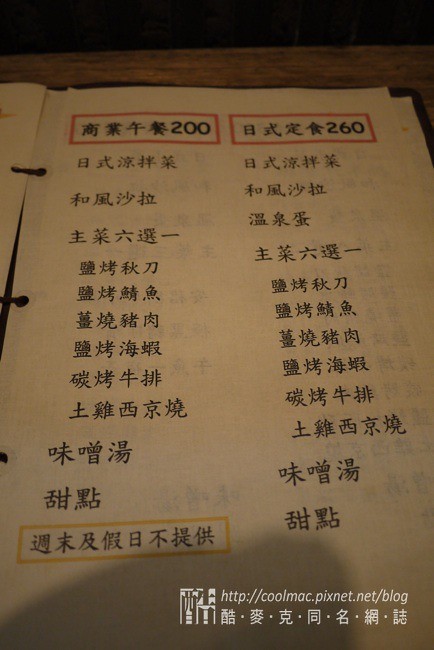 商業午餐200
日式涼拌菜
和風沙拉
主菜六選一
鹽烤秋刀
鹽烤鯖魚
薑燒豬肉
鹽烤海蝦
碳烤牛排
土雞西京燒
味噌湯
甜點
週末及假日不提供
日式定食260
日式涼拌菜
和風沙拉
溫泉蛋
主菜六選一
鹽烤秋刀
鹽烤鯖魚
薑燒豬肉
鹽烤海蝦
碳烤牛排
土雞西京燒
味噌湯
甜點
http://coolmac.pixnet.net/blog
酷·麥·克·同·名·網·誌